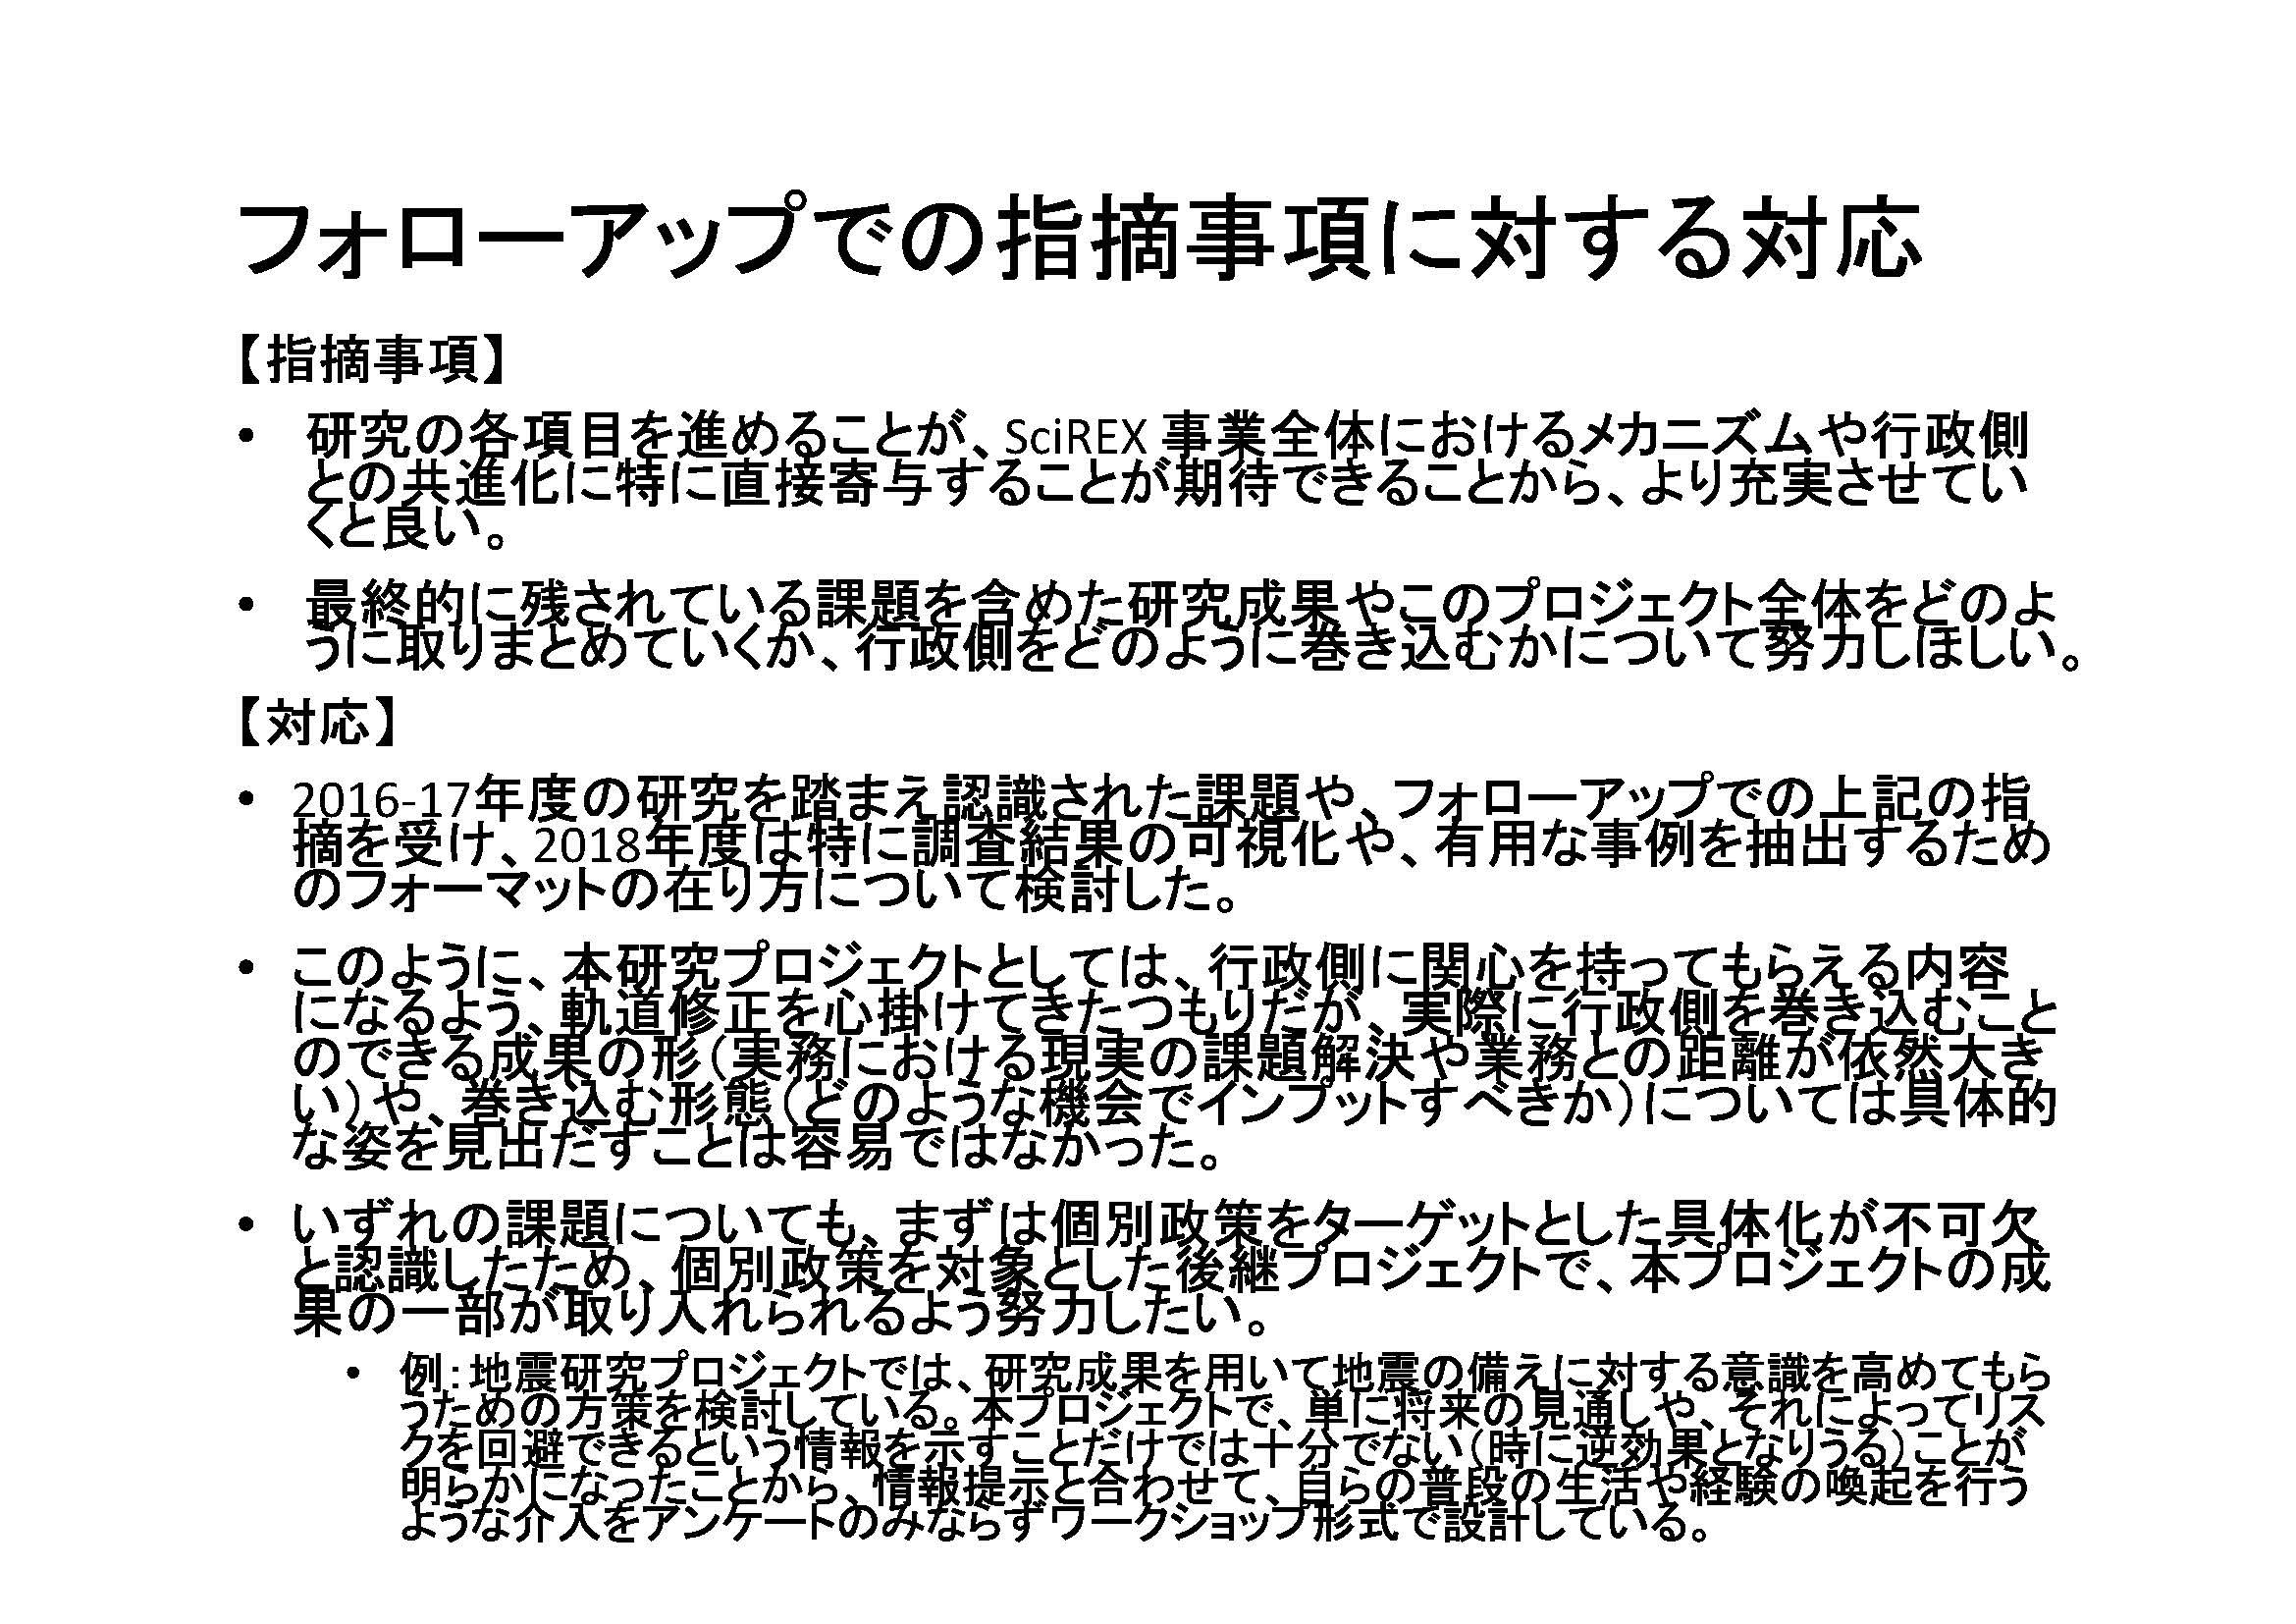 フォローアップでの指摘事項に対する対応
【指摘事項】
• 研究の各項目を進めることが、SciREX 事業全体におけるメカニズムや行政側
との共進化に特に直接寄与することが期待できることから、より充実させてい
くと良い。
• 最終的に残されている課題を含めた研究成果やこのプロジェクト全体をどのよ
うに取りまとめていくか、行政側をどのように巻き込むかについて努力しほしい。
【対応】
• 2016-17年度の研究を踏まえ認識された課題や、フォローアップでの上記の指
摘を受け、2018年度は特に調査結果の可視化や、有用な事例を抽出するため
のフォーマットの在り方について検討した。
• このように、本研究プロジェクトとしては、行政側に関心を持ってもらえる内容
になるよう、軌道修正を心掛けてきたつもりだが、実際に行政側を巻き込むこと
のできる成果の形（実務における現実の課題解決や業務との距離が依然大き
い）や、巻き込む形態（どのような機会でインプットすべきか）については具体的
な姿を見出だすことは容易ではなかった。
• いずれの課題についても、まずは個別政策をターゲットとした具体化が不可欠
と認識したため、個別政策を対象とした後継プロジェクトで、本プロジェクトの成
果の一部が取り入れられるよう努力したい。
• 例：地震研究プロジェクトでは、研究成果を用いて地震の備えに対する意識を高めてもら
うための方策を検討している。本プロジェクトで、単に将来の見通しや、それによってリス
クを回避できるという情報を示すことだけでは十分でない（時に逆効果となりうる）ことが
明らかになったことから、情報提示と合わせて、自らの普段の生活や経験の喚起を行う
ような介入をアンケートのみならずワークショップ形式で設計している。